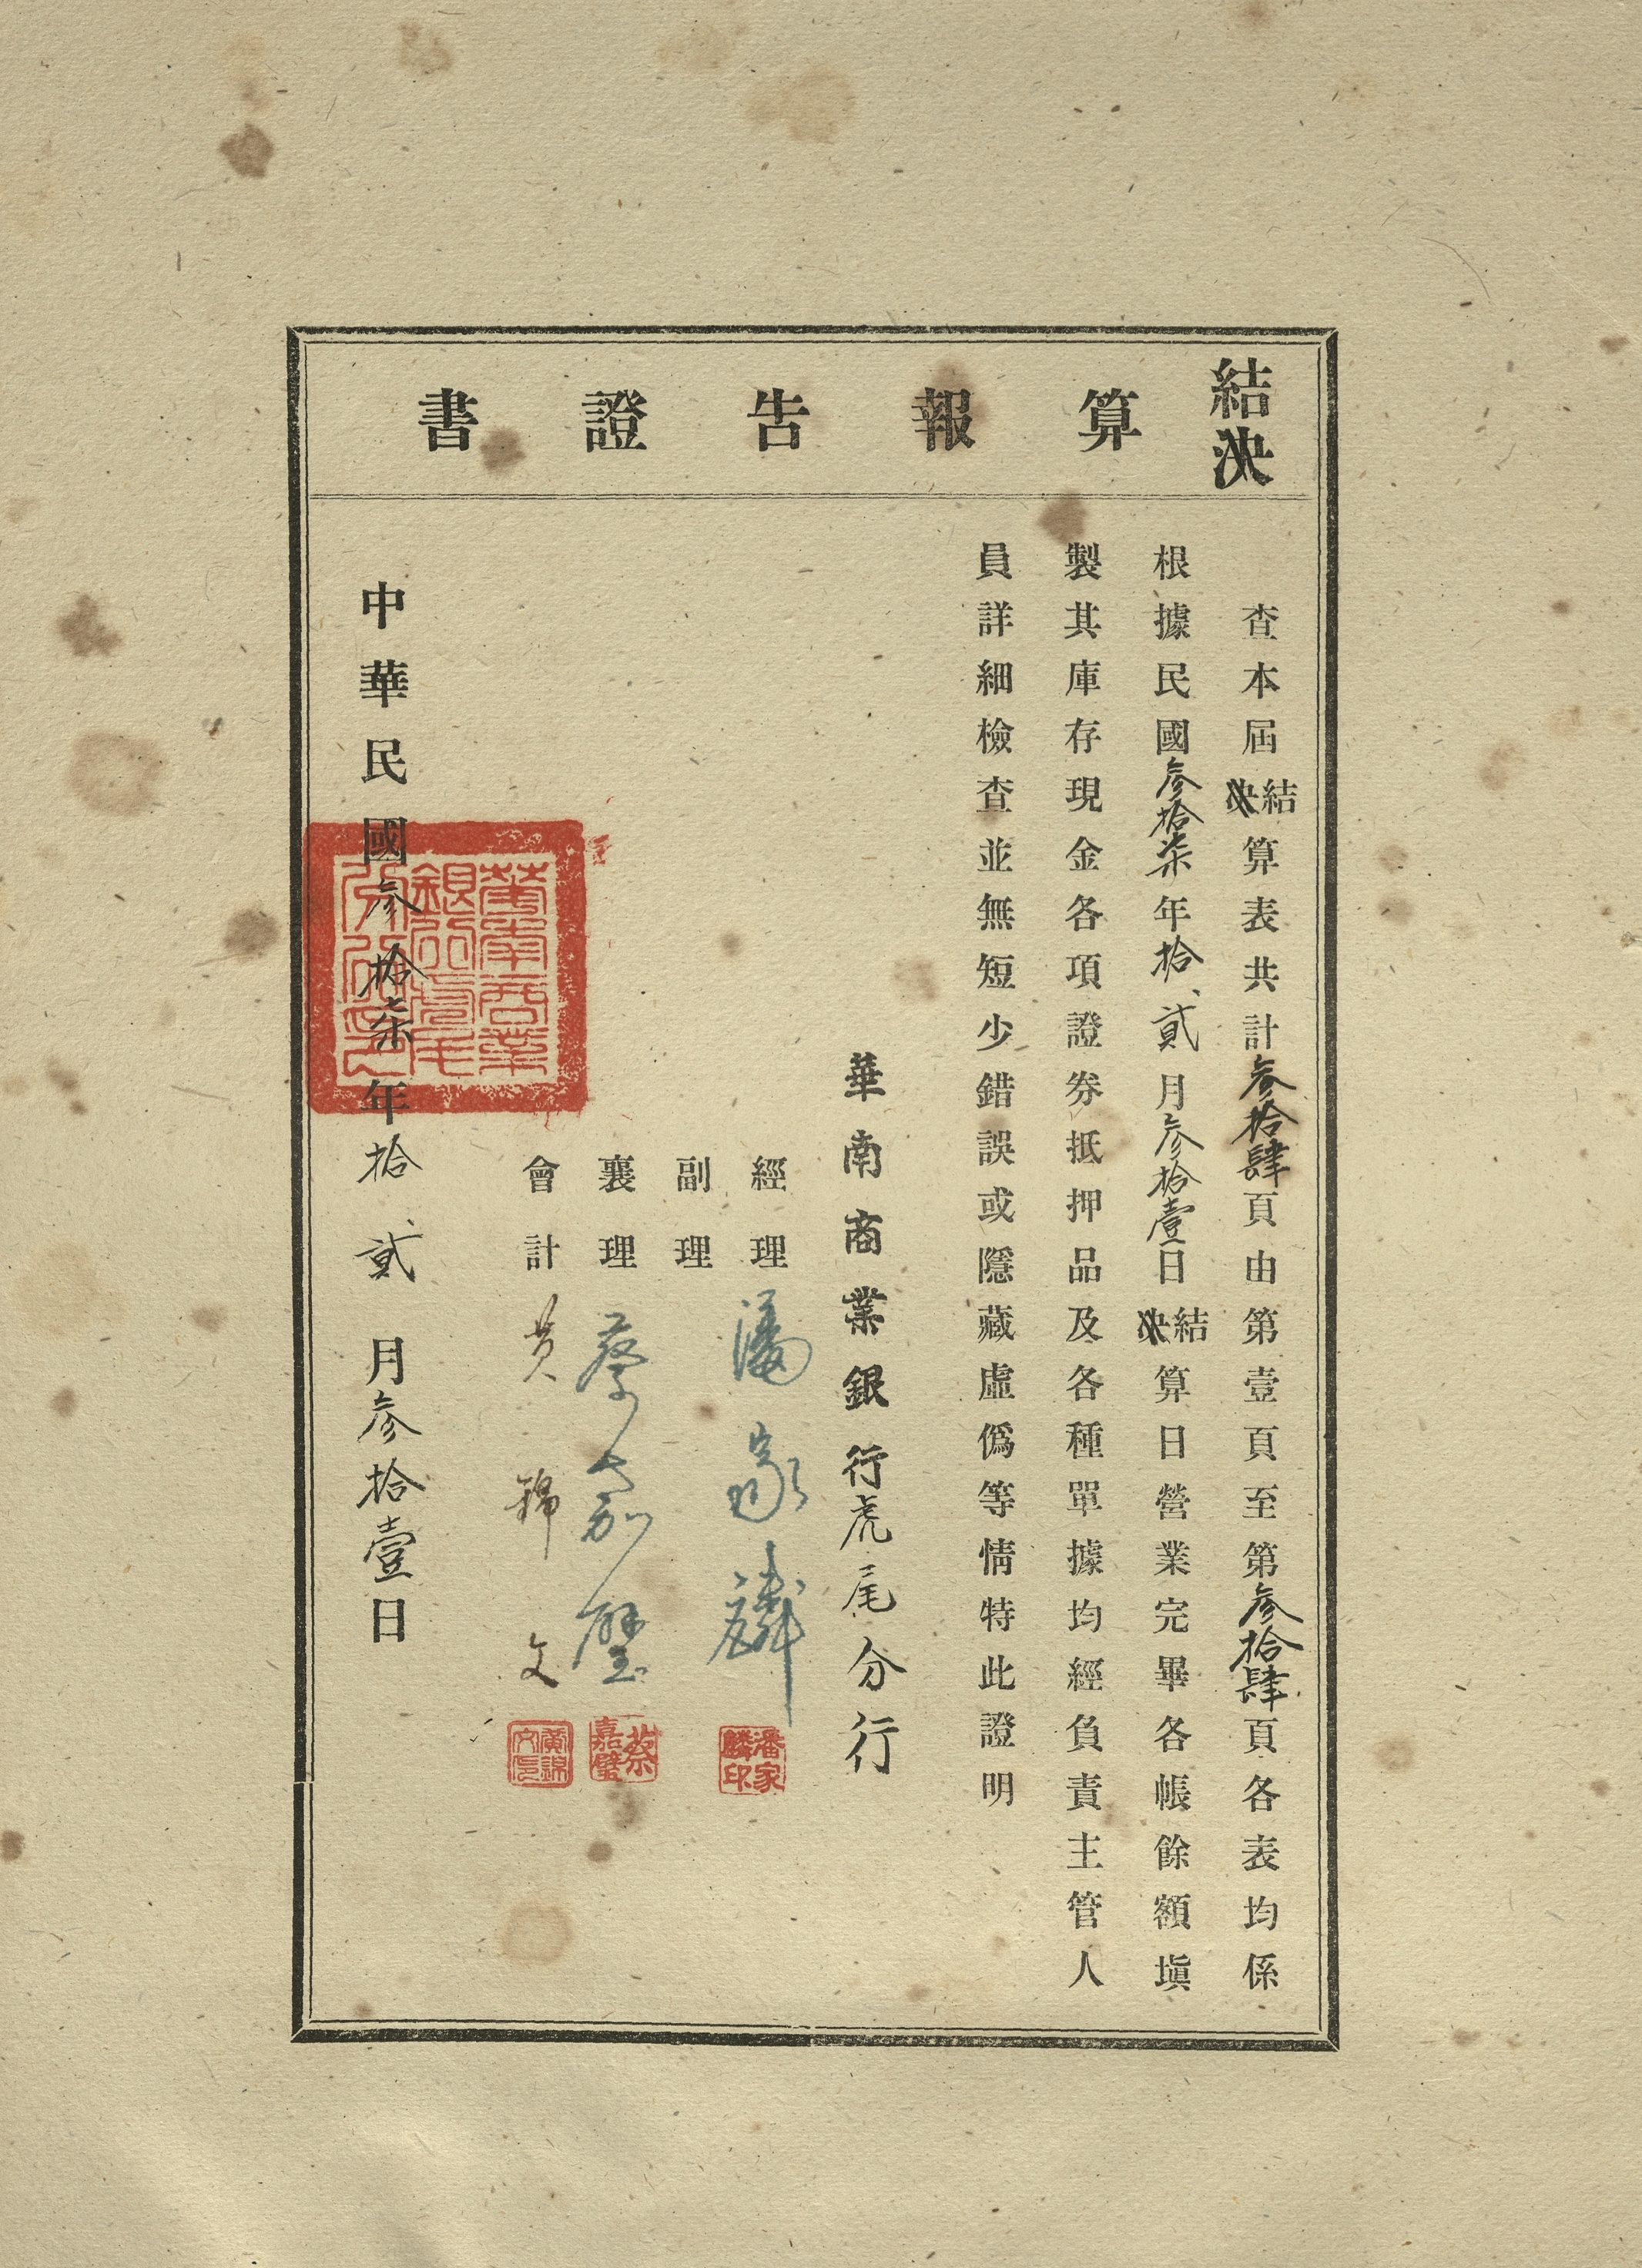 結決算報告證書
查本屆結決算表共計參拾肆頁由第壹頁至第參拾肆頁各表均係
根據民國參拾柒年拾貳月參拾壹日結決算日營業完畢各帳餘額塡
製其庫存現金各項證券抵押品及各種單據均經負責主管人
員詳細檢查並無短少錯誤或隱藏虛僞等情特此證明
華南商業銀行虎尾分行
經理 潘家麟
潘家麟印
副理
襄理 蔡嘉璧
蔡嘉璧
會計 黃錦文
黃錦文印
中華民國參拾柒年拾貳月參拾壹日